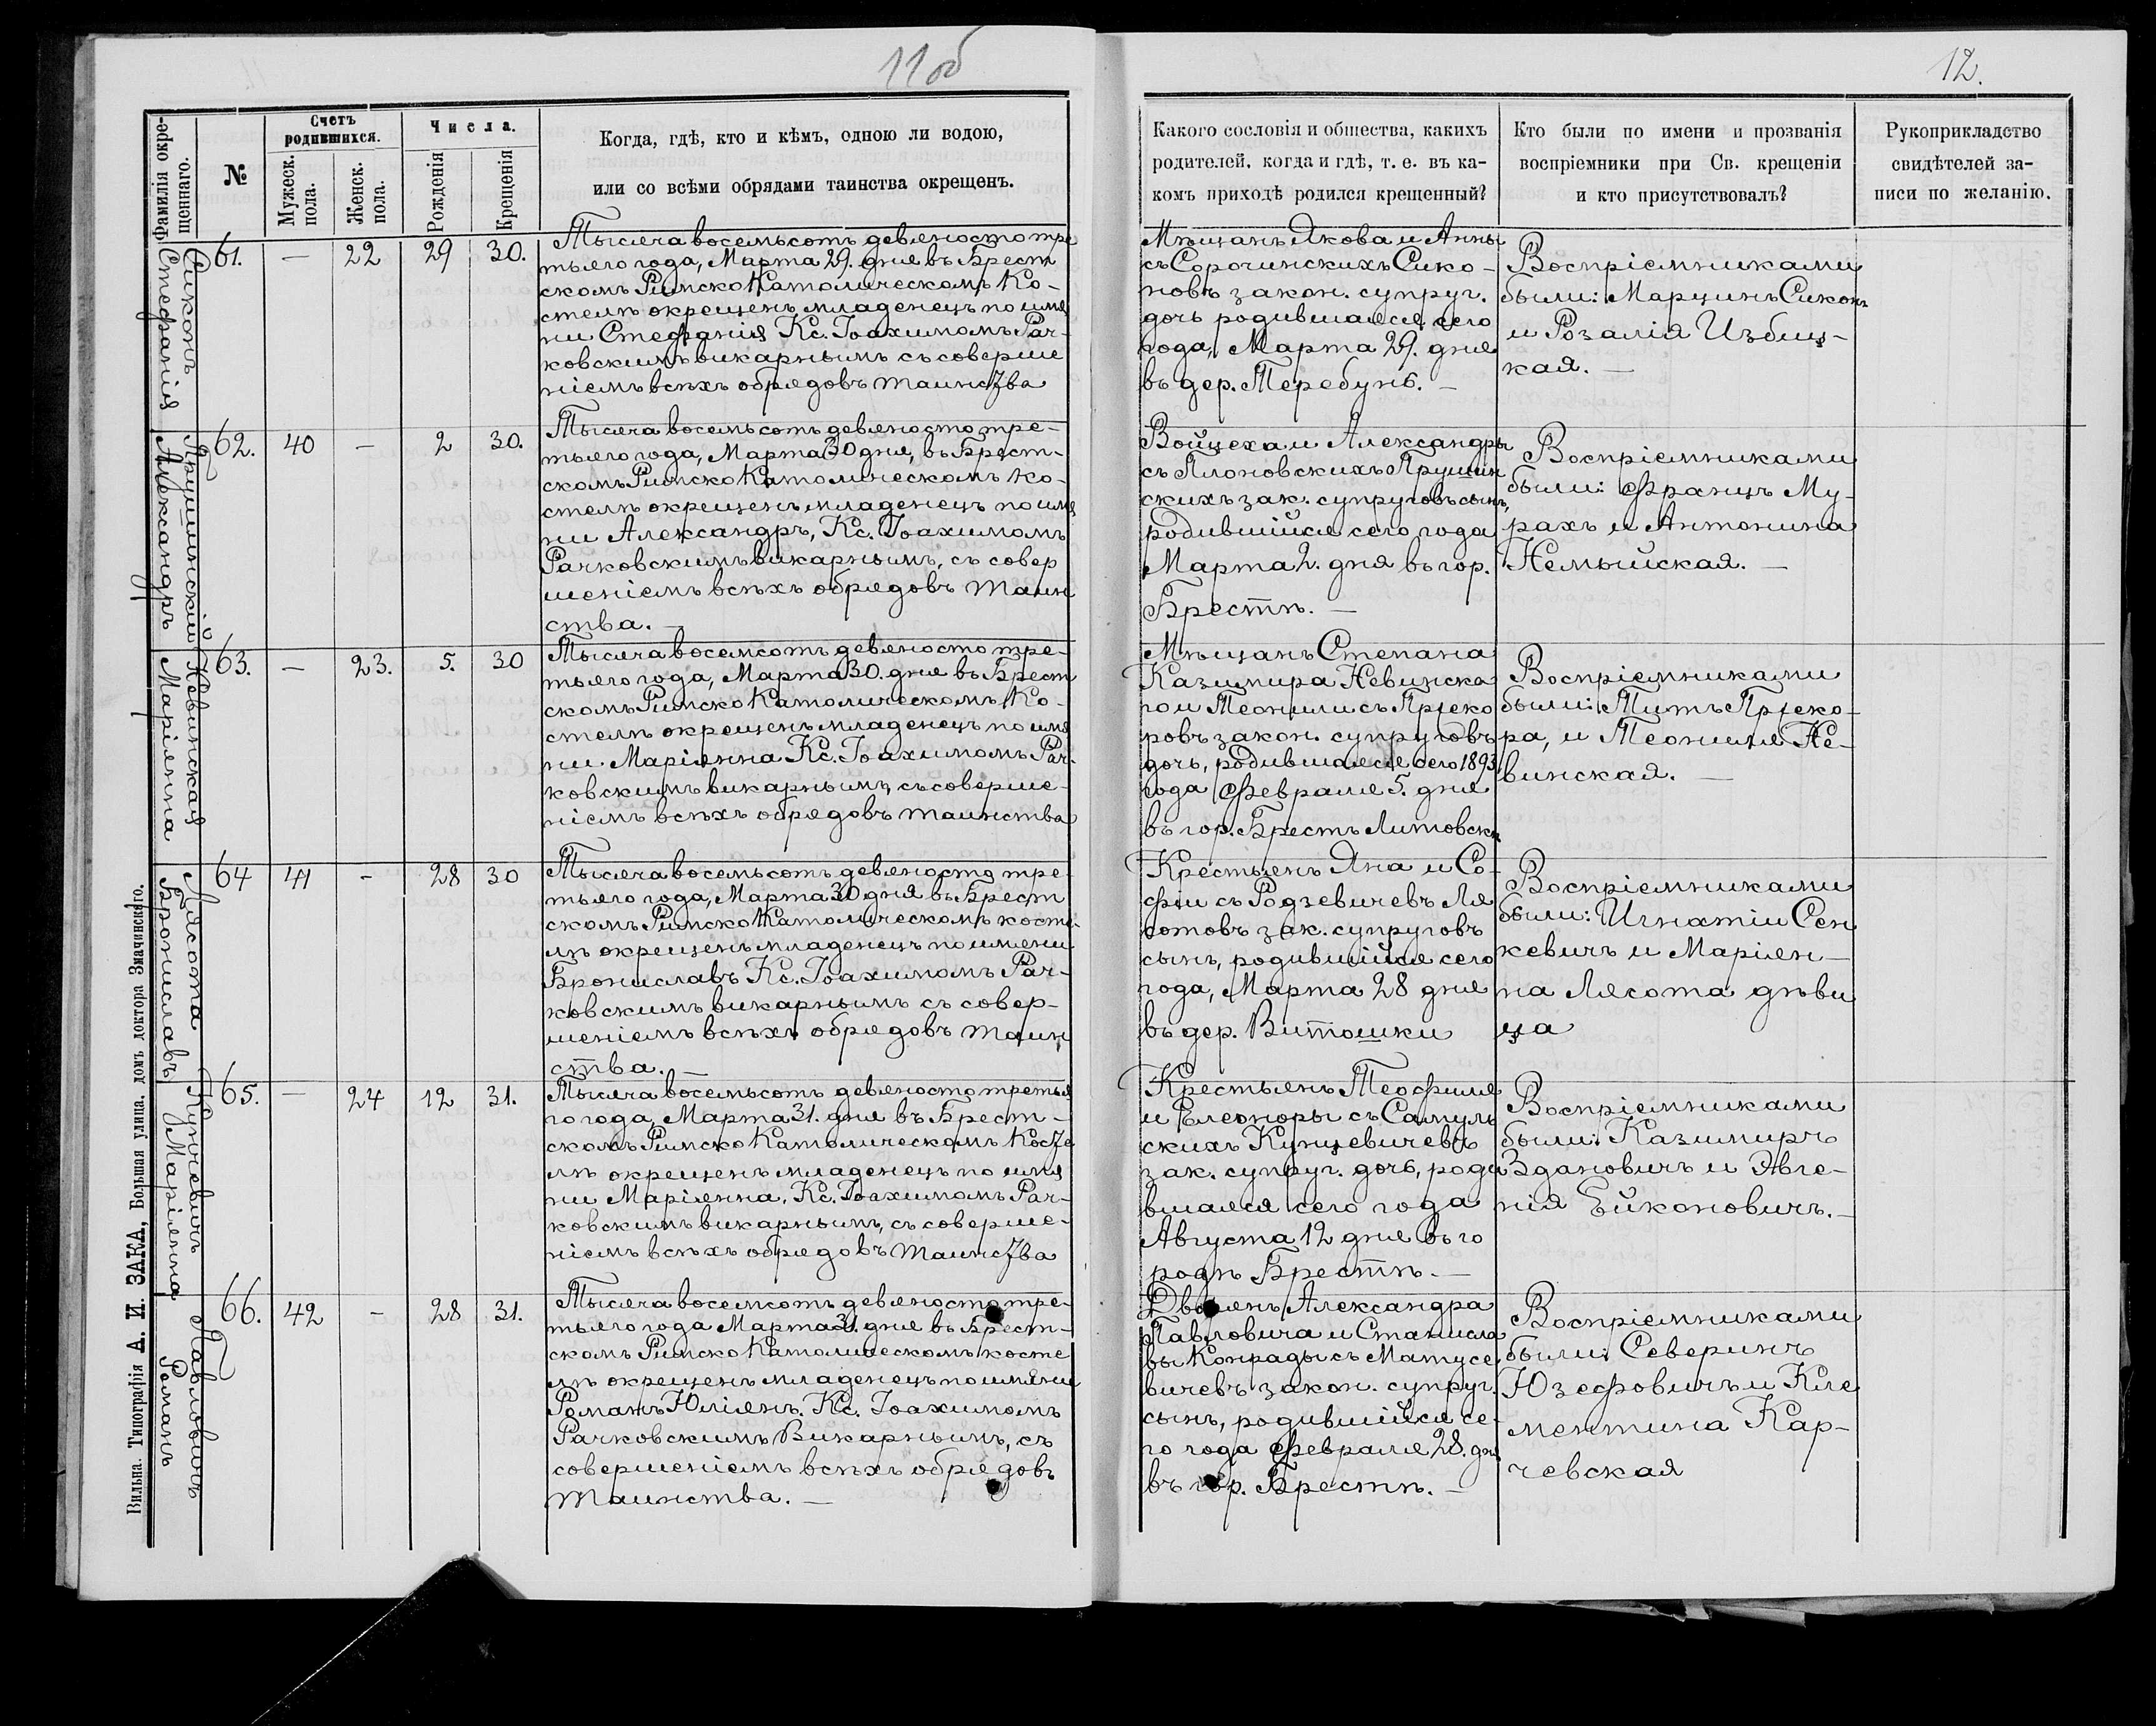 11об
12.
Фамилія окре-
щеннаго.
№
Счетъ
родившихся.
Мужеск.
пола.
Женск.
пола.
Числа.
Рожденія
Крещенія
Когда, гдѣ, кто и кѣмъ, одною ли водою,
или со всѣми обрядами таинства окрещенъ.
Какого сословія и общества, какихъ
родителей, когда и гдѣ, т. е. въ ка-
комъ приходѣ родился крещенный?
Кто были по имени и прозванія
воспріемники при Св. крещеніи
и кто присутствовалъ?
Рукоприкладство
свидѣтелей за-
писи по желанію.
Сиконъ
Стефанія
61. — 22 29 30.
Тысяча восемьсотъ девяносто тре
тьяго года, Марта 29. дня въ Брест
скомъ Римско Католическомъ Ко-
стелѣ окрещенъ младенецъ по име
ни Стефанія Кс. Іоахимомъ Рач-
ковскимъ викарнымъ съ соверше
ніемъ всѣхъ обрядовъ таинства
Мѣщанъ Якова и Анны
съ Сорочинскихъ Сико-
новъ закон. супруг.
дочь родившаяся сего
года, Марта 29. дня
въ дер. Теребунь. —
Воспріемниками
были: Марцинъ Сиконъ
и Розалія Избиц-
кая. —
Ярушинскій
Александръ
62. 40 — 2 30.
Тысяча восемьсотъ девяносто тре-
тьяго года, Марта 30 дня, въ Брест-
скомъ Римско Католическомъ Ко-
стелѣ окрещенъ младенецъ по име
ни Александръ, Кс. Іоахимомъ
Рачковскимъ викарнымъ, съ совер
шеніемъ всѣхъ обрядовъ таин
ства. —
Войцеха и Александры
съ Ялоновскихъ Ярушин
скихъ зак. супруговъ сынъ,
родившійся сего года
Марта 2. дня въ гор.
Брестѣ. —
Воспріемниками
были: Францъ Му-
рахъ и Антонина
Немыйская. —
Невинская
Маріянна
63. — 23. 5. 30
Тысяча восемсотъ девяносто тре-
тьяго года, Марта 30. дня въ Брест
скомъ Римско Католическомъ Ко-
стелѣ окрещенъ младенецъ по име
ни Маріянна Кс. Іоахимомъ Рач-
ковскимъ викарнымъ, съ соверше-
ніемъ всѣхъ обрядовъ таинства
Мѣщанъ Степана
Казимира Невинска
го и Теонили съ
ровъ закон. супруговъ
дочь, родившаяся сего 1893
года Февраля 5. дня
въ гор. Брестъ Литовскѣ
Воспріемниками
были: Титъ
ра, и Теониля Не-
винская. —
Лясота
Брониславъ
64 41 - 28 30
Тысяча восемьсотъ девяносто тре-
тьяго года, Марта 30 дня въ Брест
скомъ Римско Католическомъ косте-
лѣ окрещенъ младенецъ по имени
Брониславъ Кс. Іоахимомъ Рач-
ковскимъ викарнымъ съ совер-
шеніемъ всѣхъ обрядовъ таин
ства. —
Крестьянъ Яна и Со-
фіи съ Родзевичевъ Ля
сотовъ зак. супруговъ
сынъ, родившійся сего
года, Марта 28 дня
въ дер. Витошки
Воспріемниками
были: Игнатій Сен
кевичъ и Маріян-
на Лясота дѣви
ца
Кунцевичъ
Маріянна
65. — 24 12 31.
Тысяча восемьсотъ девяносто третья
го года, Марта 31. дня въ Брест-
скомъ Римско Католическомъ Косте
лѣ окрещенъ младенецъ по име
ни Маріянна, Кс. Іоахимомъ Рач-
ковскимъ викарнымъ, съ соверше-
ніемъ всѣхъ обрядовъ таинства
Крестьянъ Теофиля
и Елеоноры съ Самуль
скихъ Кунцевичевъ
зак. супруг. дочь, роди
вшаяся сего года
Августа 12 дня въ го
родѣ Брестѣ. —
Воспріемниками
были: Казимиръ
Здановичъ и Эвге-
нія Ейконовичъ. —
Павловичъ
Романъ
66. 42 - 28 31.
Тысяча восемсотъ девяносто тре-
тьяго года Марта 31. дня въ Брест-
скомъ Римско Католическомъ косте
лѣ окрещенъ младенецъ по имени
Романъ Юліянъ. Кс. Іоахимомъ
Рачковскимъ Викарнымъ, съ
совершеніемъ всѣхъ обрядовъ
Таинства. —
Дворянъ Александра
Павловича и Станисла
вы Конрады съ Матусе
вичевъ закон. супруг.
сынъ, родившійся се-
го года Февраля 28. дня
въ гор. Брестѣ. —
Воспріемниками
были: Северинъ
Юзефовичъ и Кле
ментина Кар-
чевская
Вильна. Типографія А. И. ЗАКА, Большая улица, домъ доктора Значинского.